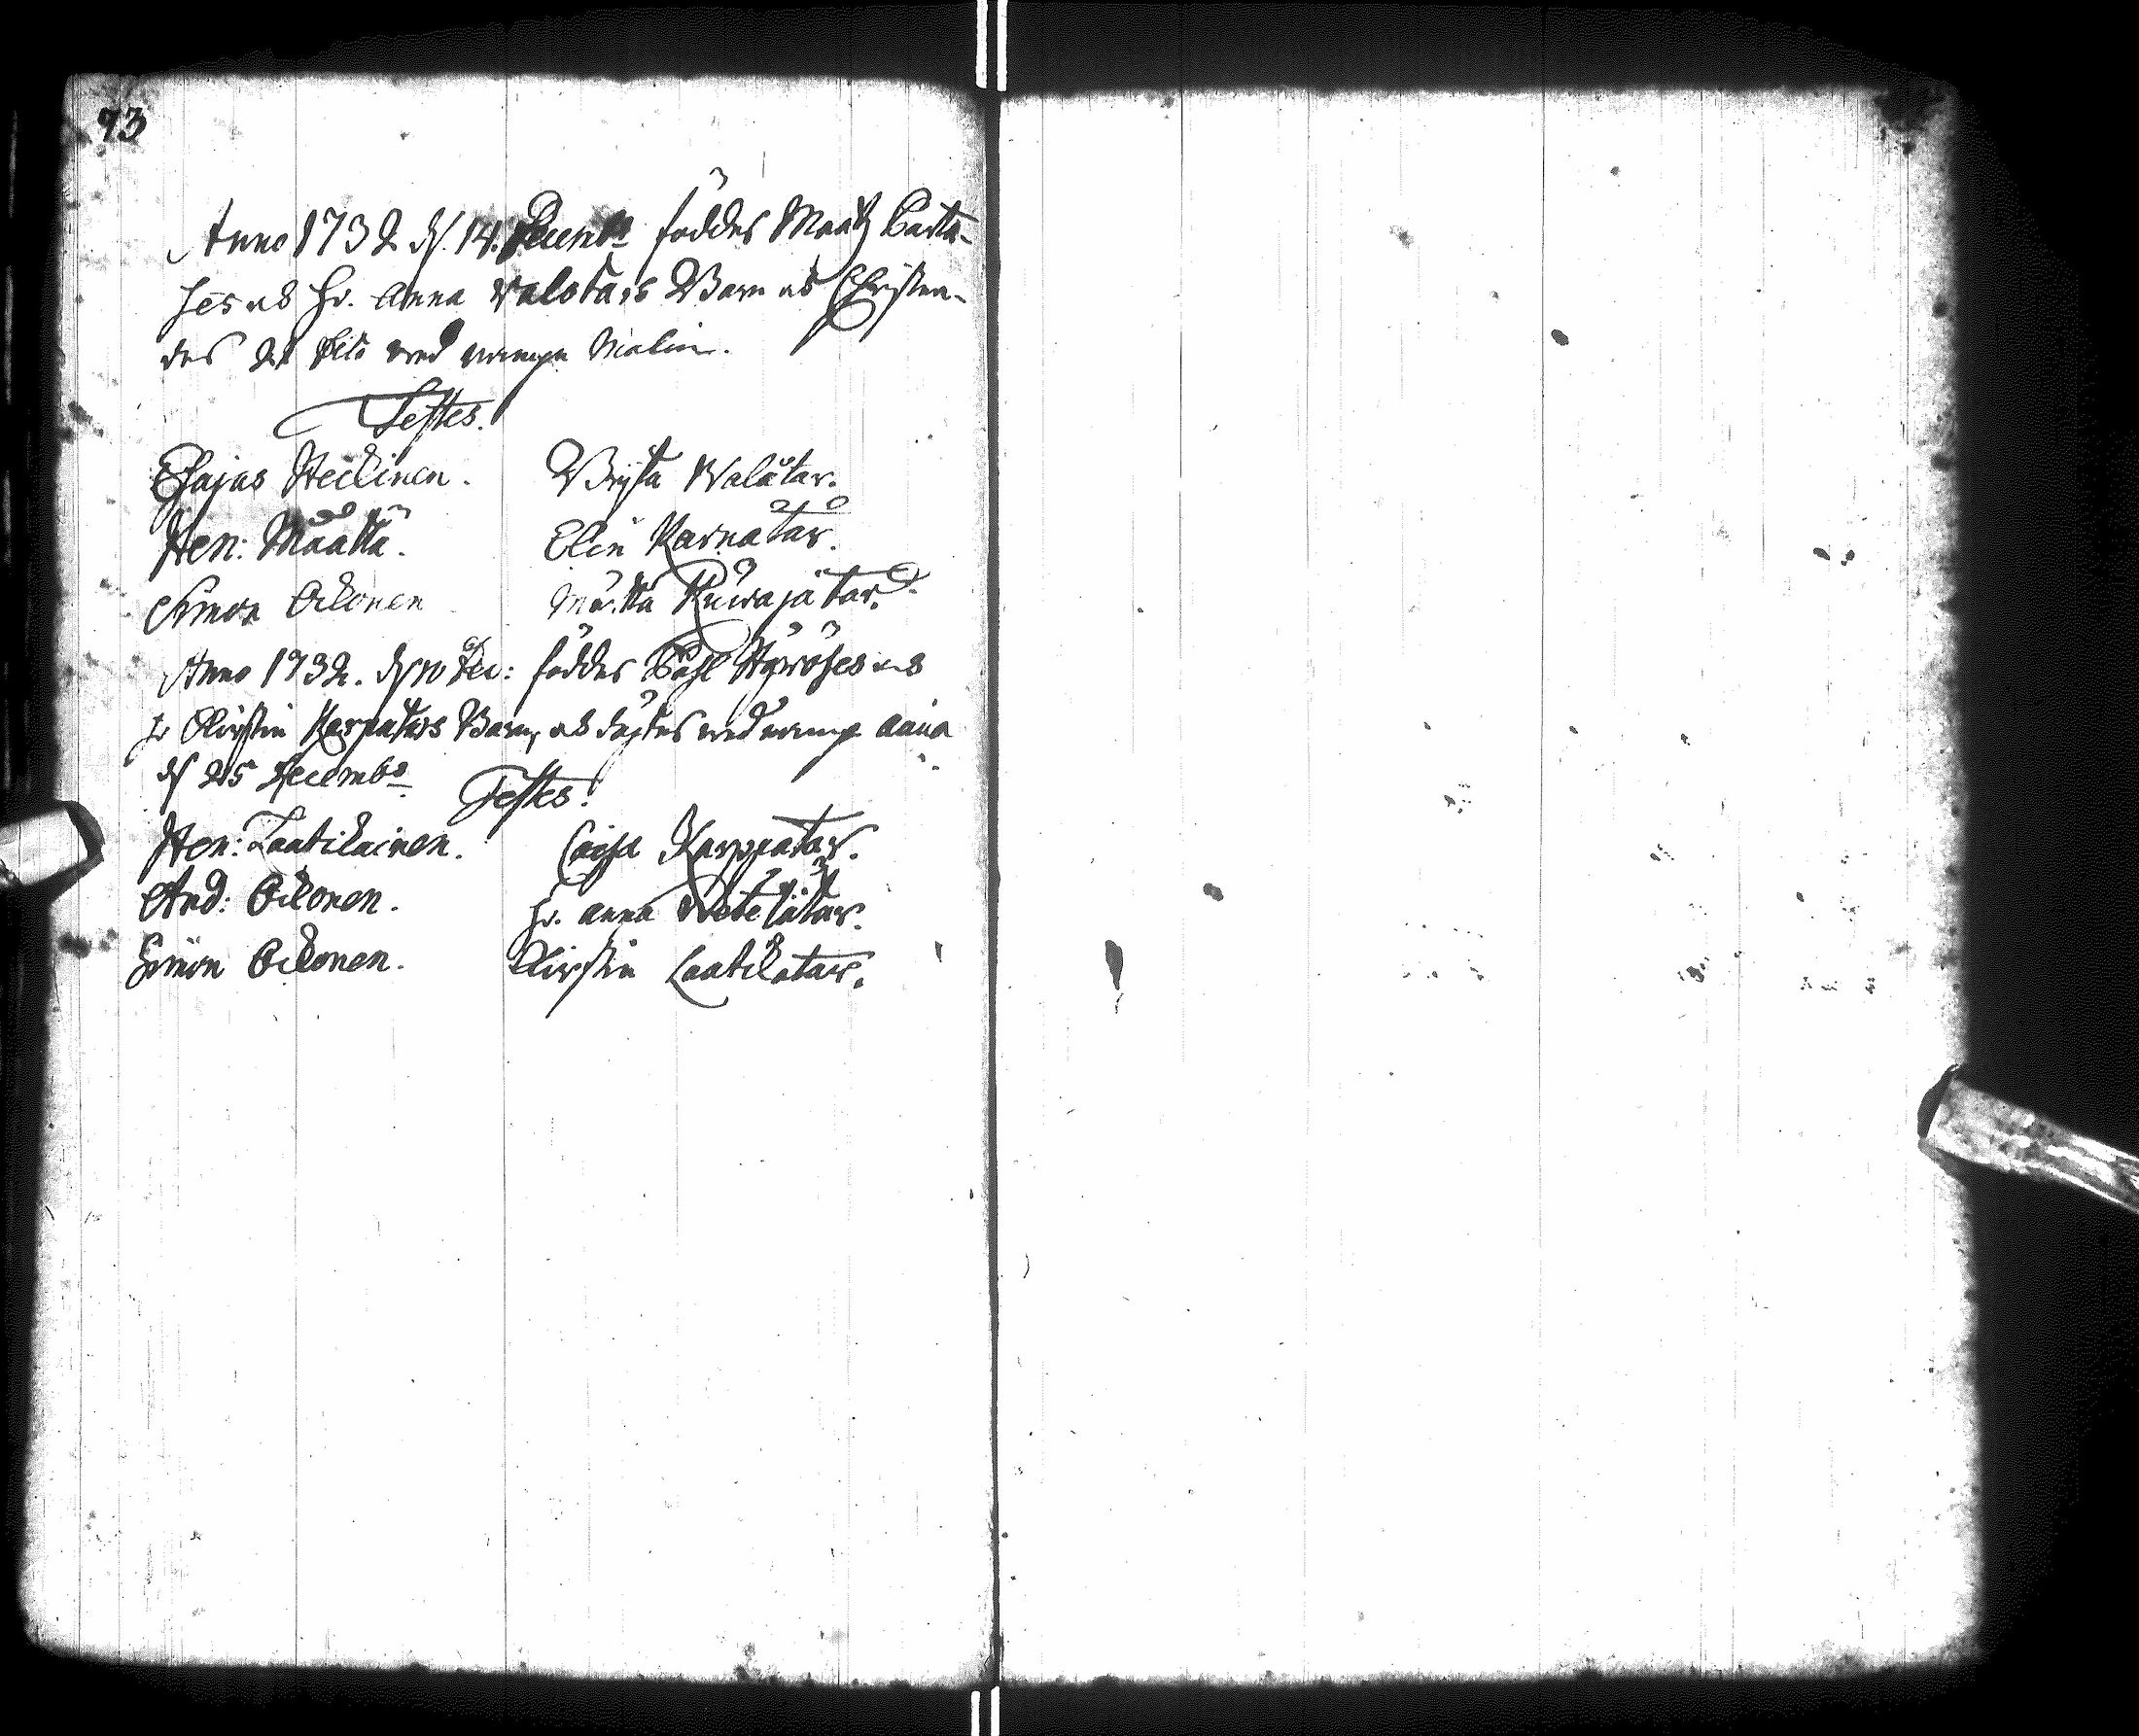 93
Anno 1732 d. 14. Decembr föddes Maatz Parta-
ses och H. Anna Valotars Barn och Christna-
des 26 dito med nampn Malin.
Testes.
Esajas Heickinen. Brijta Walåtar.
Hen: Määttä. Elin Karnatar.
Simon Ockonen Märtta Kuiwajatar.
Anno 1732. d 10 Dec: föddes Påhl Hÿwöses och
h Kirstin Karpatars Barn, och döptes med nampn Anna
d 25 Decembr Testes.
Hen: Laatikainen. Caisa Karppatar.
And: Ockonen. H. Anna
Simon Ockonen. Kirstin Laatikatar.